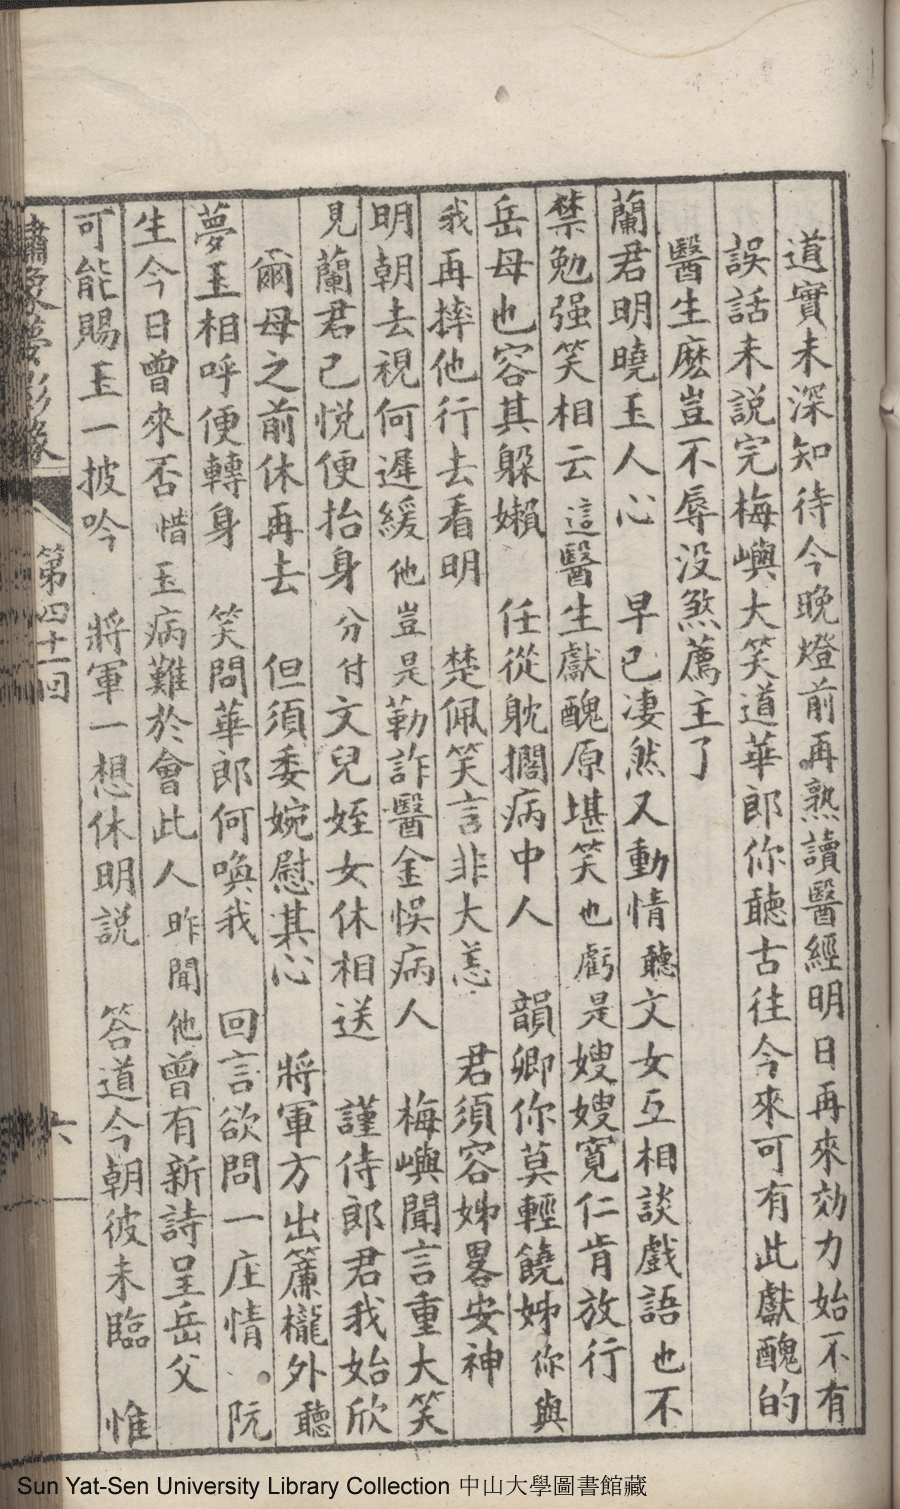 道實未深知待今晚燈前再熟讀醫經明日再來効力始不有
誤話未説完梅嶼大笑道華郎你聽古往今來可有此獻醜的
醫生麽豈不辱没煞薦主了
蘭君明曉玉人心　早已凄然又動情聽文女互相談戲語也不
禁勉强笑相云這醫生獻醜原堪笑也虧是嫂嫂寛仁肯放行
岳母也容其躲嬾　任從躭擱病中人　韻卿你莫輕饒姊你與
我再摔他行去看明　楚佩笑言非大恙　君須容姊畧安神
明朝去視何遲緩他豈是勒詐醫金悞病人　梅嶼聞言重大笑
見蘭君已悦便抬身分付文兒姪女休相送　謹侍郎君我始欣
爾母之前休再去　但須委婉慰其心　將軍方出簾櫳外聽
夢玉相呼便轉身　笑問華郎何喚我　回言欲問一庄情。阮
生今日曾來否惜玉病難於會此人昨聞他曾有新詩呈岳父
可能賜玉一披吟　將軍一想休明説　答道今朝彼未臨　惟
夢影緣
第四十一回
六
Sun Yat-Sen University Library Collection 中山大學圖書館藏